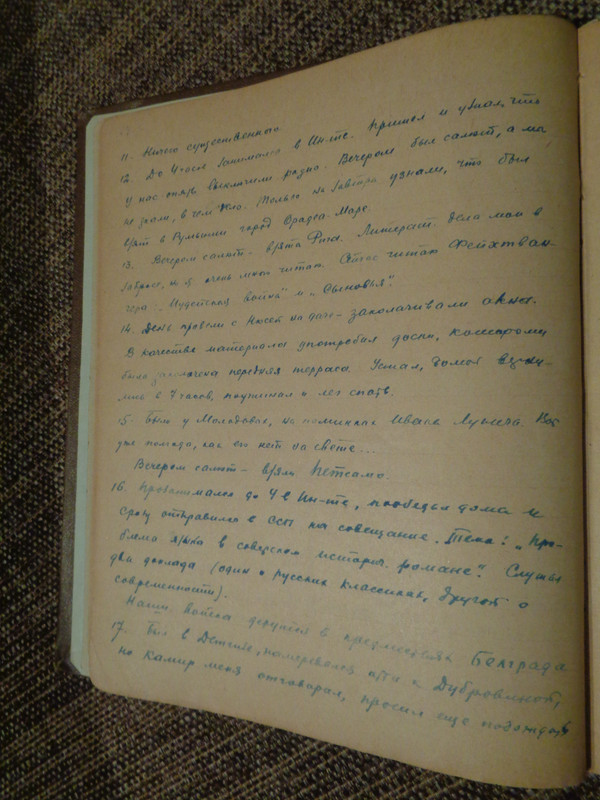 11. Ничего существенного.
12. До 4 часов занимался в Ин-те. Пришел и узнал, что
у нас опять выключили радио. Вечером был салют, а мы
не знали, в чем дело. Только на завтра узнали, что был
взят в Румынии город Орадеа-Маре.
13. Вечером салют - взята Рига. Литерат. дела мои в
забросе, но я очень много читаю. Сейчас читаю Фейхтван-
гера: „Иудейская война" и „Сыновья".
14. День провели с Люсей на даче - заколачивали окна.
В качестве материалов употребил доски, которыми
была заколочена передняя терраса. Устал, домой верну-
лись в 7 часов, поужинал и лег спать.
15. Были у Молодовых, на поминках Ивана. Вот
уже полгода, как его нет на свете...
Вечером салют - взяли Петсамо.
16. Прозанимался до 4 в Ин-те, пообедал дома и
сразу отправился в ССП на совещание. Тема: „Про-
блема языка в советском историч. романе". Слушал
два доклада (один о русских классиках, другой о
современности).
Наши войска дерутся в предместьях Белграда
17. Был в Детгизе, намеревался идти к Дубровиной,
но Камир меня отговорил, просил еще подождать